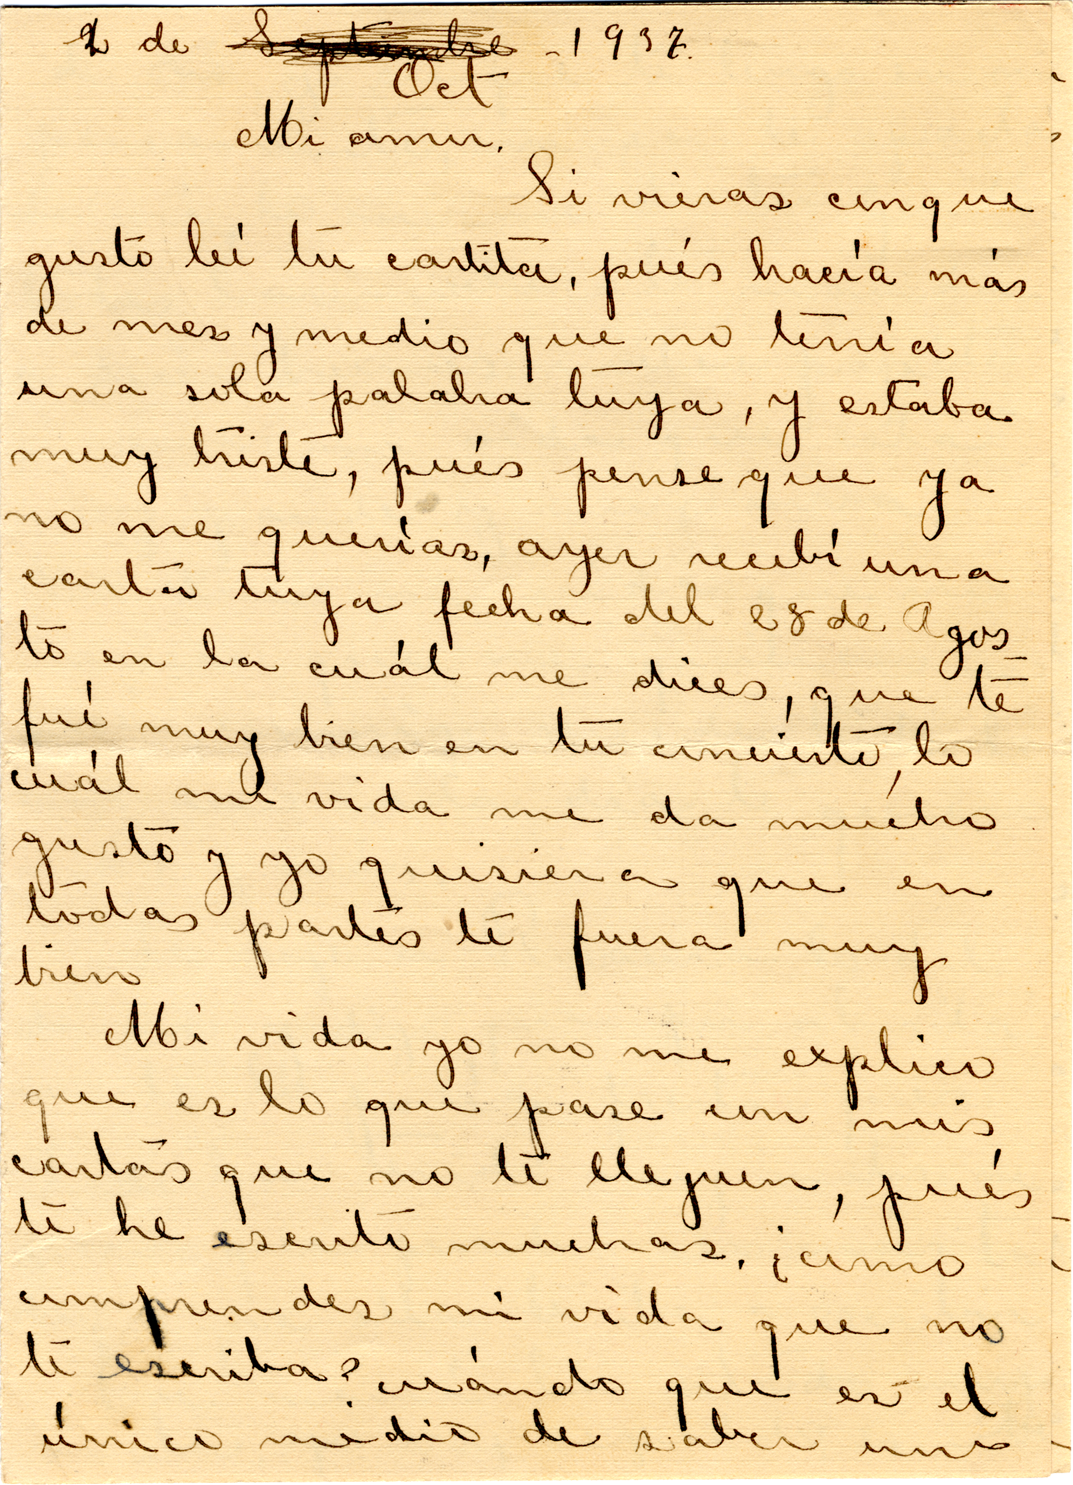 2 de Septiembre - 1937.
Oct
Mi amor.
Si vieras con que
gusto leí tu cartita, pués hacía más
de mes y medio que no tenía
una sola palabra tuya, y estaba
muy triste, pués pense que ya
no me querías, ayer recibí una
carta tuya fecha del 28 de Agos
to en la cuál me dices, que te
fué muy bien en tu concierto, lo
cuál mi vida me da mucho
gusto y yo quisiera que en
todas partes te fuera muy
bien
Mi vida yo no me explico
que es lo que pase con mis
cartas que no te lleguen, pués
te he escrito muchas, ¿cómo
comprendes mi vida que no
te escriba? cuándo que es el
único medio de saber uno